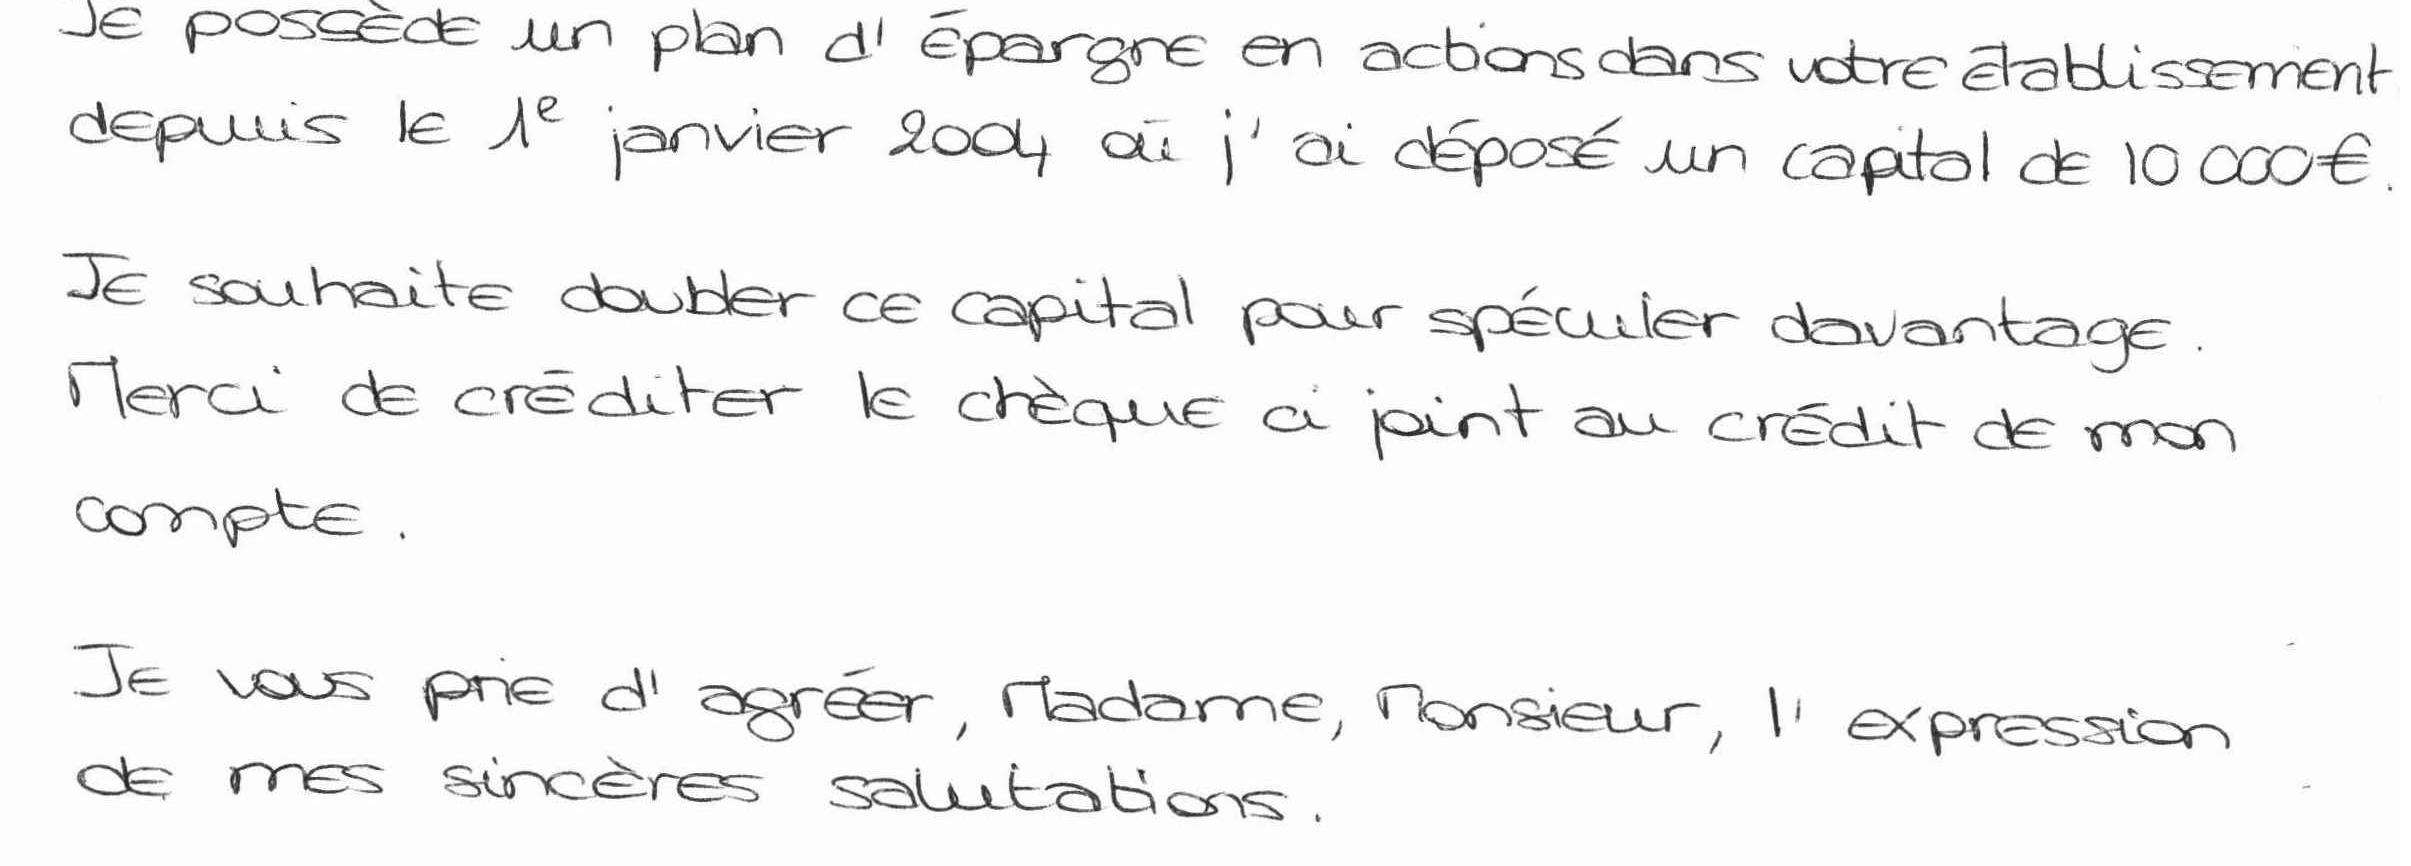 Je possède un plan d'épargne en actions dans votre établissement
depuis le 1e janvier 2004 où j'ai déposé un capital de 10 000€.
Je souhaite doubler ce capital pour spéculer davantage.
Merci de créditer le chèque ci joint au crédit de mon
compte.
Je vous prie d'agréer, Madame, Monsieur, l'expression
de mes sincères salutations.